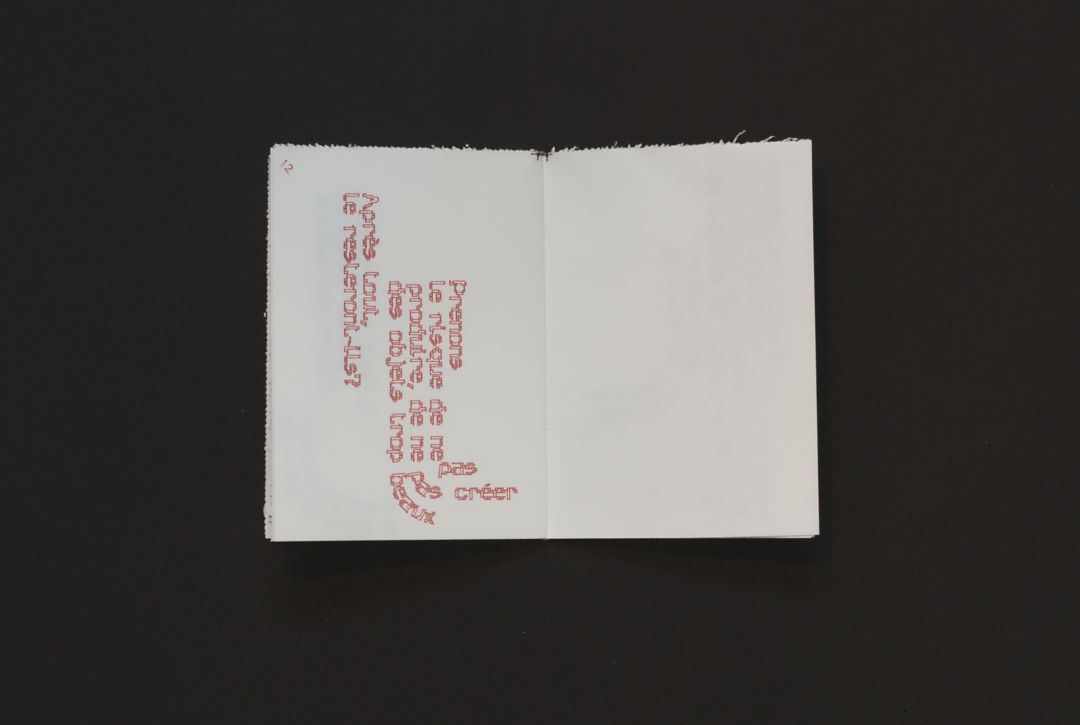 12
Prenons
le risque de ne pas
produire, de ne pas créer
des objets trop beaux
Après tout,
le resteront-ils?